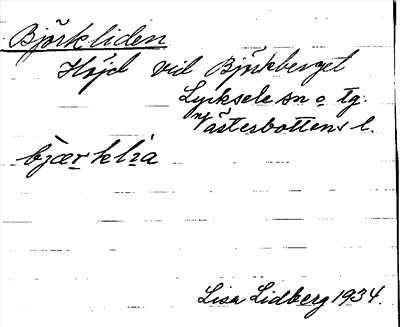 Björkliden
Höjd vid Björkberget
Lycksele sn o tg.
Västerbottens l.
bjærklia
Lisa Lidberg 1934.